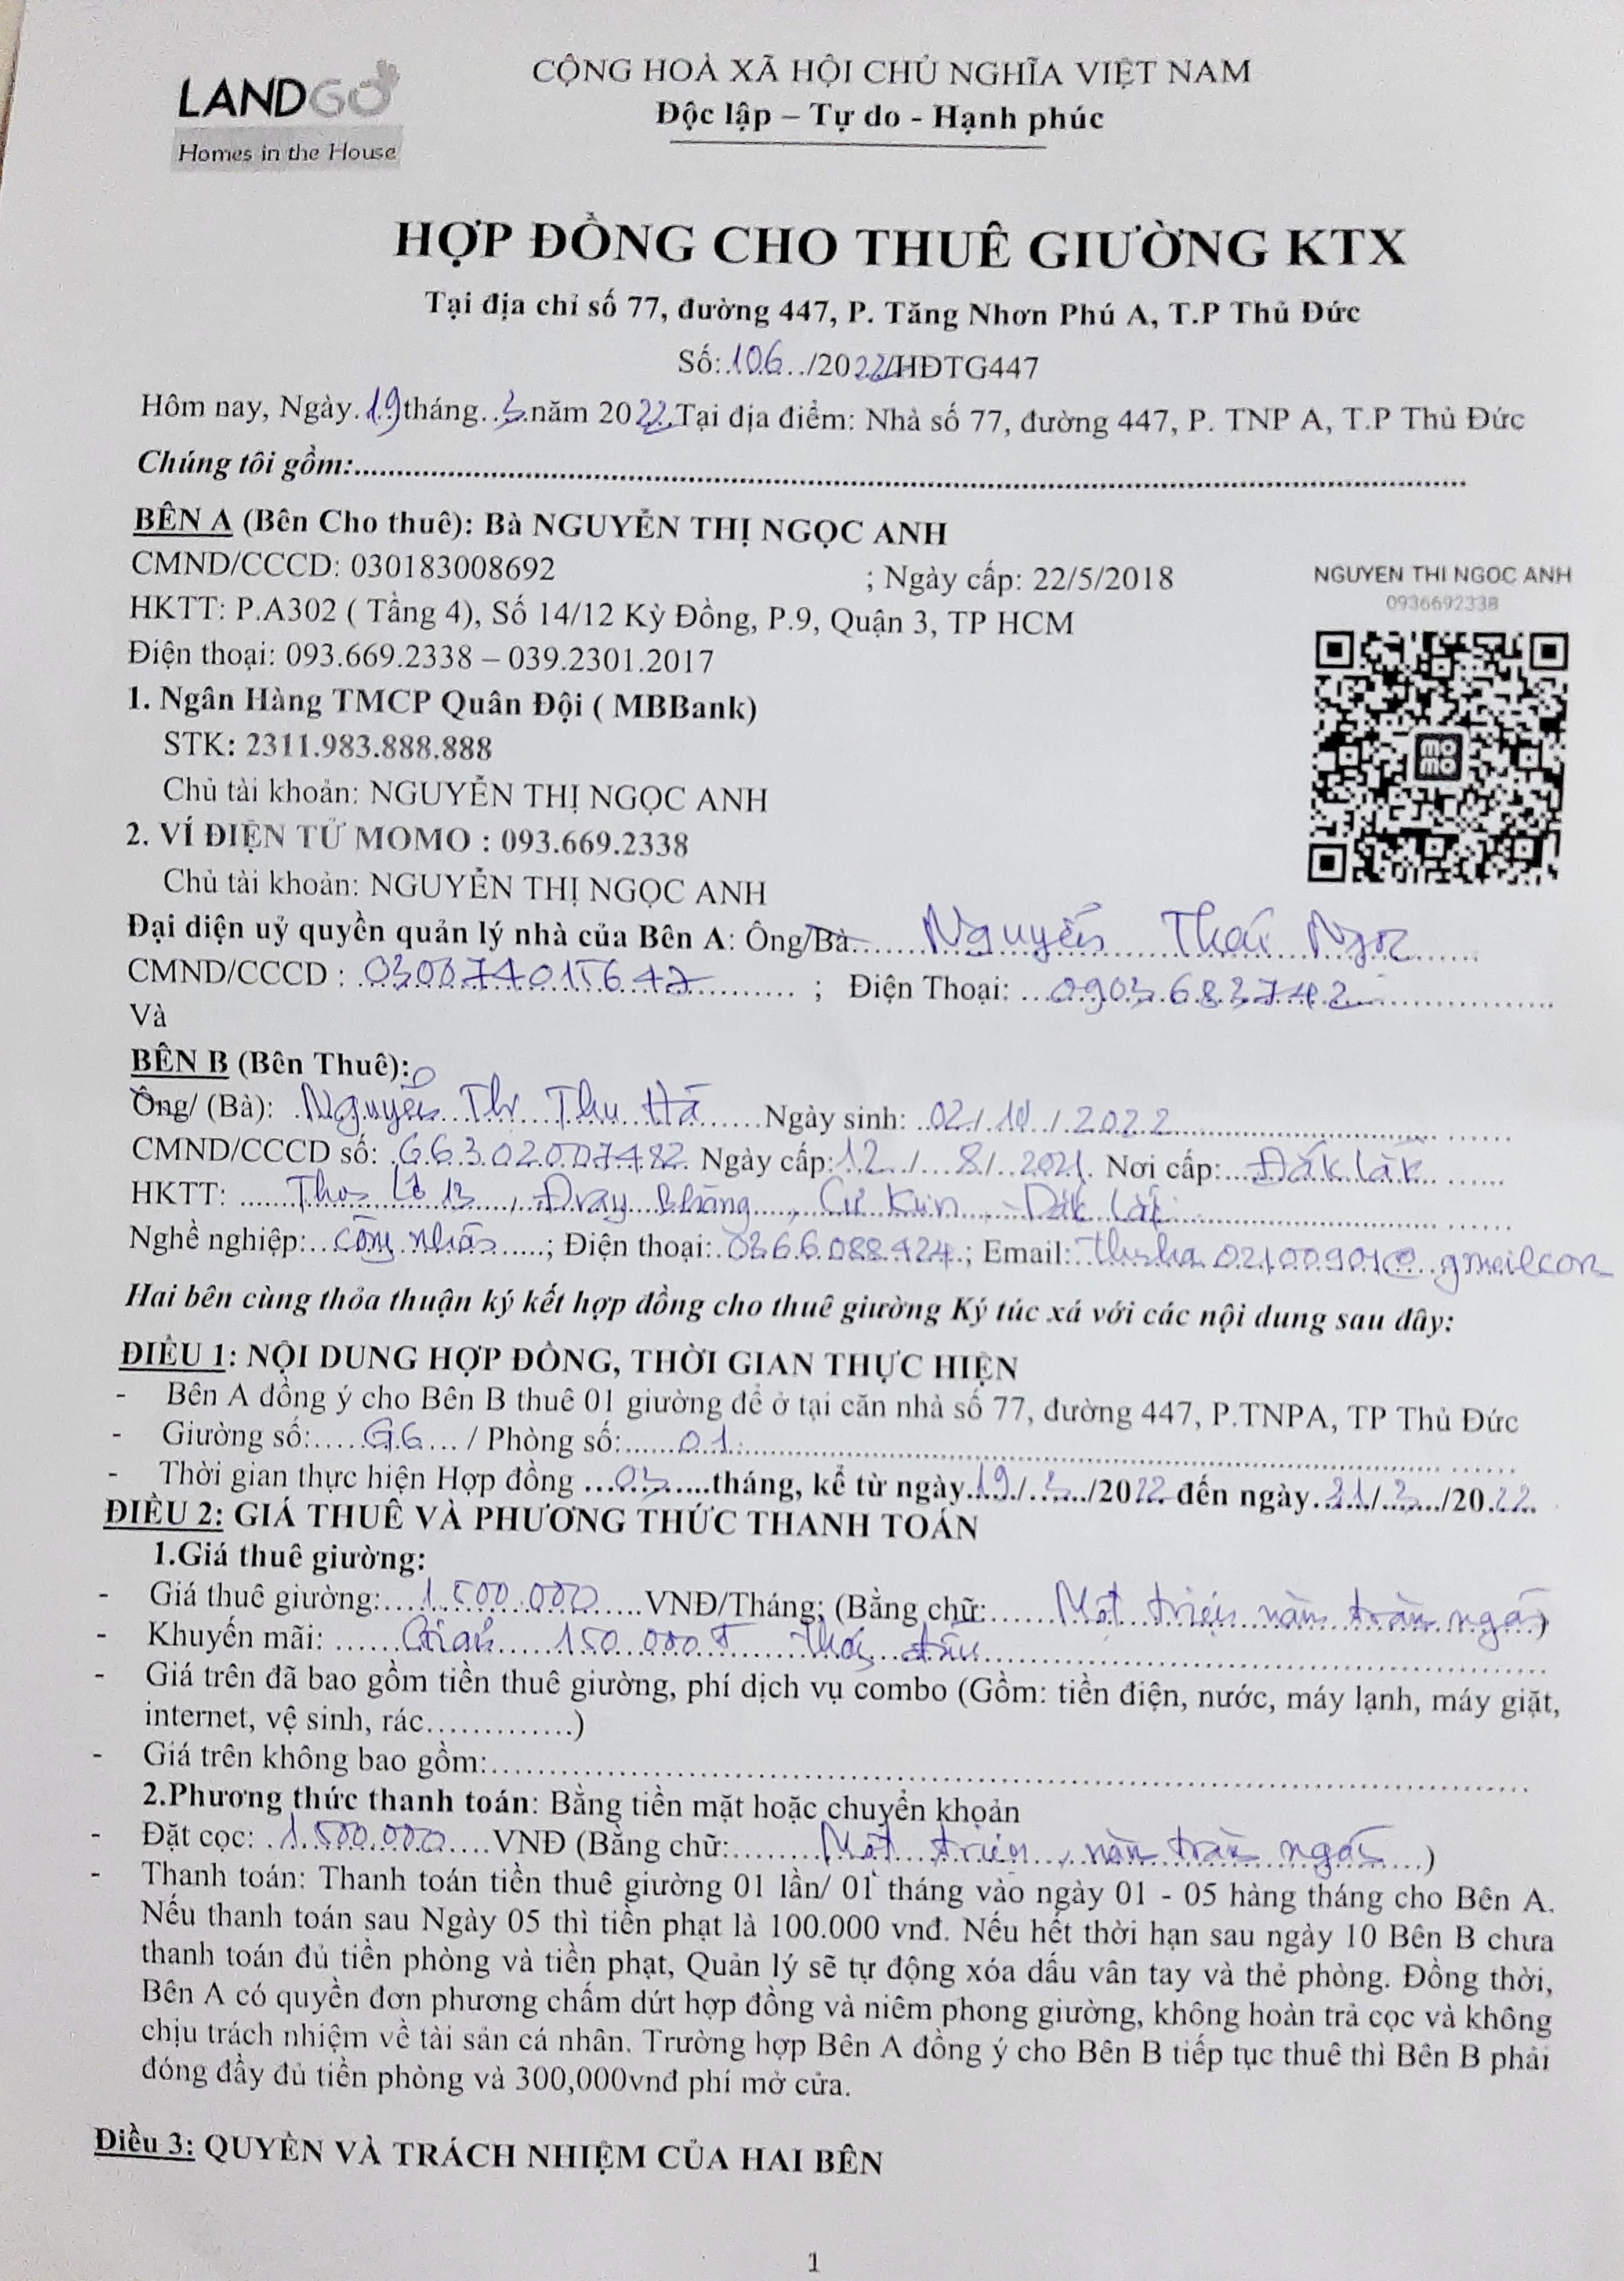 LANDGO
Homes in the House
CỘNG HOÀ XÃ HỘI CHỦ NGHĨA VIỆT NAM
Độc lập – Tự do - Hạnh phúc
HỢP ĐỒNG CHO THUÊ GIƯỜNG KTX
Tại địa chỉ số 77, đường 447, P. Tăng Nhơn Phú A, T.P Thủ Đức
Số: 106 /2022/HĐTG447
Hôm nay, Ngày 19 tháng 3 năm 2022 Tại địa điểm: Nhà số 77, đường 447, P. TNP A, T.P Thủ Đức
Chúng tôi gồm:
BÊN A (Bên Cho thuê): Bà NGUYỄN THỊ NGỌC ANH
CMND/CCCD: 030183008692 ; Ngày cấp: 22/5/2018
NGUYEN THI NGOC ANH
0936692338
HKTT: P.A302 ( Tầng 4), Số 14/12 Kỳ Đồng, P.9, Quận 3, TP HCM
Điện thoại: 093.669.2338 – 039.2301.2017
1. Ngân Hàng TMCP Quân Đội ( MBBank)
STK: 2311.983.888.888
Chủ tài khoản: NGUYỄN THỊ NGỌC ANH
2. VÍ ĐIỆN TỬ MOMO : 093.669.2338
Chủ tài khoản: NGUYỄN THỊ NGỌC ANH
Đại diện uỷ quyền quản lý nhà của Bên A: Ông/Bà Nguyễn Thái Ngọc
CMND/CCCD : 030074015647 ; Điện Thoại: 0903683742
Và
BÊN B (Bên Thuê):
Ông/ (Bà): Nguyễn Thị Thu Hà Ngày sinh: 02/10/2022
CMND/CCCD số: 663020007482 Ngày cấp: 12/8/2021 Nơi cấp: Đắk Lắk
HKTT: Thôn Lô 13, Đray Bhăng, Cư Kuin, Đắk Lắk
Nghề nghiệp: công nhân; Điện thoại: 0366088424; Email: thuha02100901@gmail.com
Hai bên cùng thỏa thuận ký kết hợp đồng cho thuê giường Ký túc xá với các nội dung sau đây:
ĐIỀU 1: NỘI DUNG HỢP ĐỒNG, THỜI GIAN THỰC HIỆN
- Bên A đồng ý cho Bên B thuê 01 giường để ở tại căn nhà số 77, đường 447, P.TNPA, TP Thủ Đức
- Giường số: G6 / Phòng số: 01
- Thời gian thực hiện Hợp đồng 03 tháng, kể từ ngày 19/3/2022 đến ngày 31/3/2022
ĐIỀU 2: GIÁ THUÊ VÀ PHƯƠNG THỨC THANH TOÁN
1.Giá thuê giường:
- Giá thuê giường: 1.500.000 VNĐ/Tháng; (Bằng chữ: Một triệu năm trăm ngàn)
- Khuyến mãi: Giảm 150.000đ tháng đầu
- Giá trên đã bao gồm tiền thuê giường, phí dịch vụ combo (Gồm: tiền điện, nước, máy lạnh, máy giặt,
internet, vệ sinh, rác.............)
- Giá trên không bao gồm:
2.Phương thức thanh toán: Bằng tiền mặt hoặc chuyển khoản
- Đặt cọc: 1.500.000 VNĐ (Bằng chữ: Một triệu, năm trăm ngàn)
- Thanh toán: Thanh toán tiền thuê giường 01 lần/ 01 tháng vào ngày 01 - 05 hàng tháng cho Bên A.
Nếu thanh toán sau Ngày 05 thì tiền phạt là 100.000 vnđ. Nếu hết thời hạn sau ngày 10 Bên B chưa
thanh toán đủ tiền phòng và tiền phạt, Quản lý sẽ tự động xóa dấu vân tay và thẻ phòng. Đồng thời,
Bên A có quyền đơn phương chấm dứt hợp đồng và niêm phong giường, không hoàn trả cọc và không
chịu trách nhiệm về tài sản cá nhân. Trường hợp Bên A đồng ý cho Bên B tiếp tục thuê thì Bên B phải
đóng đầy đủ tiền phòng và 300,000vnđ phí mở cửa.
Điều 3: QUYỀN VÀ TRÁCH NHIỆM CỦA HAI BÊN
1